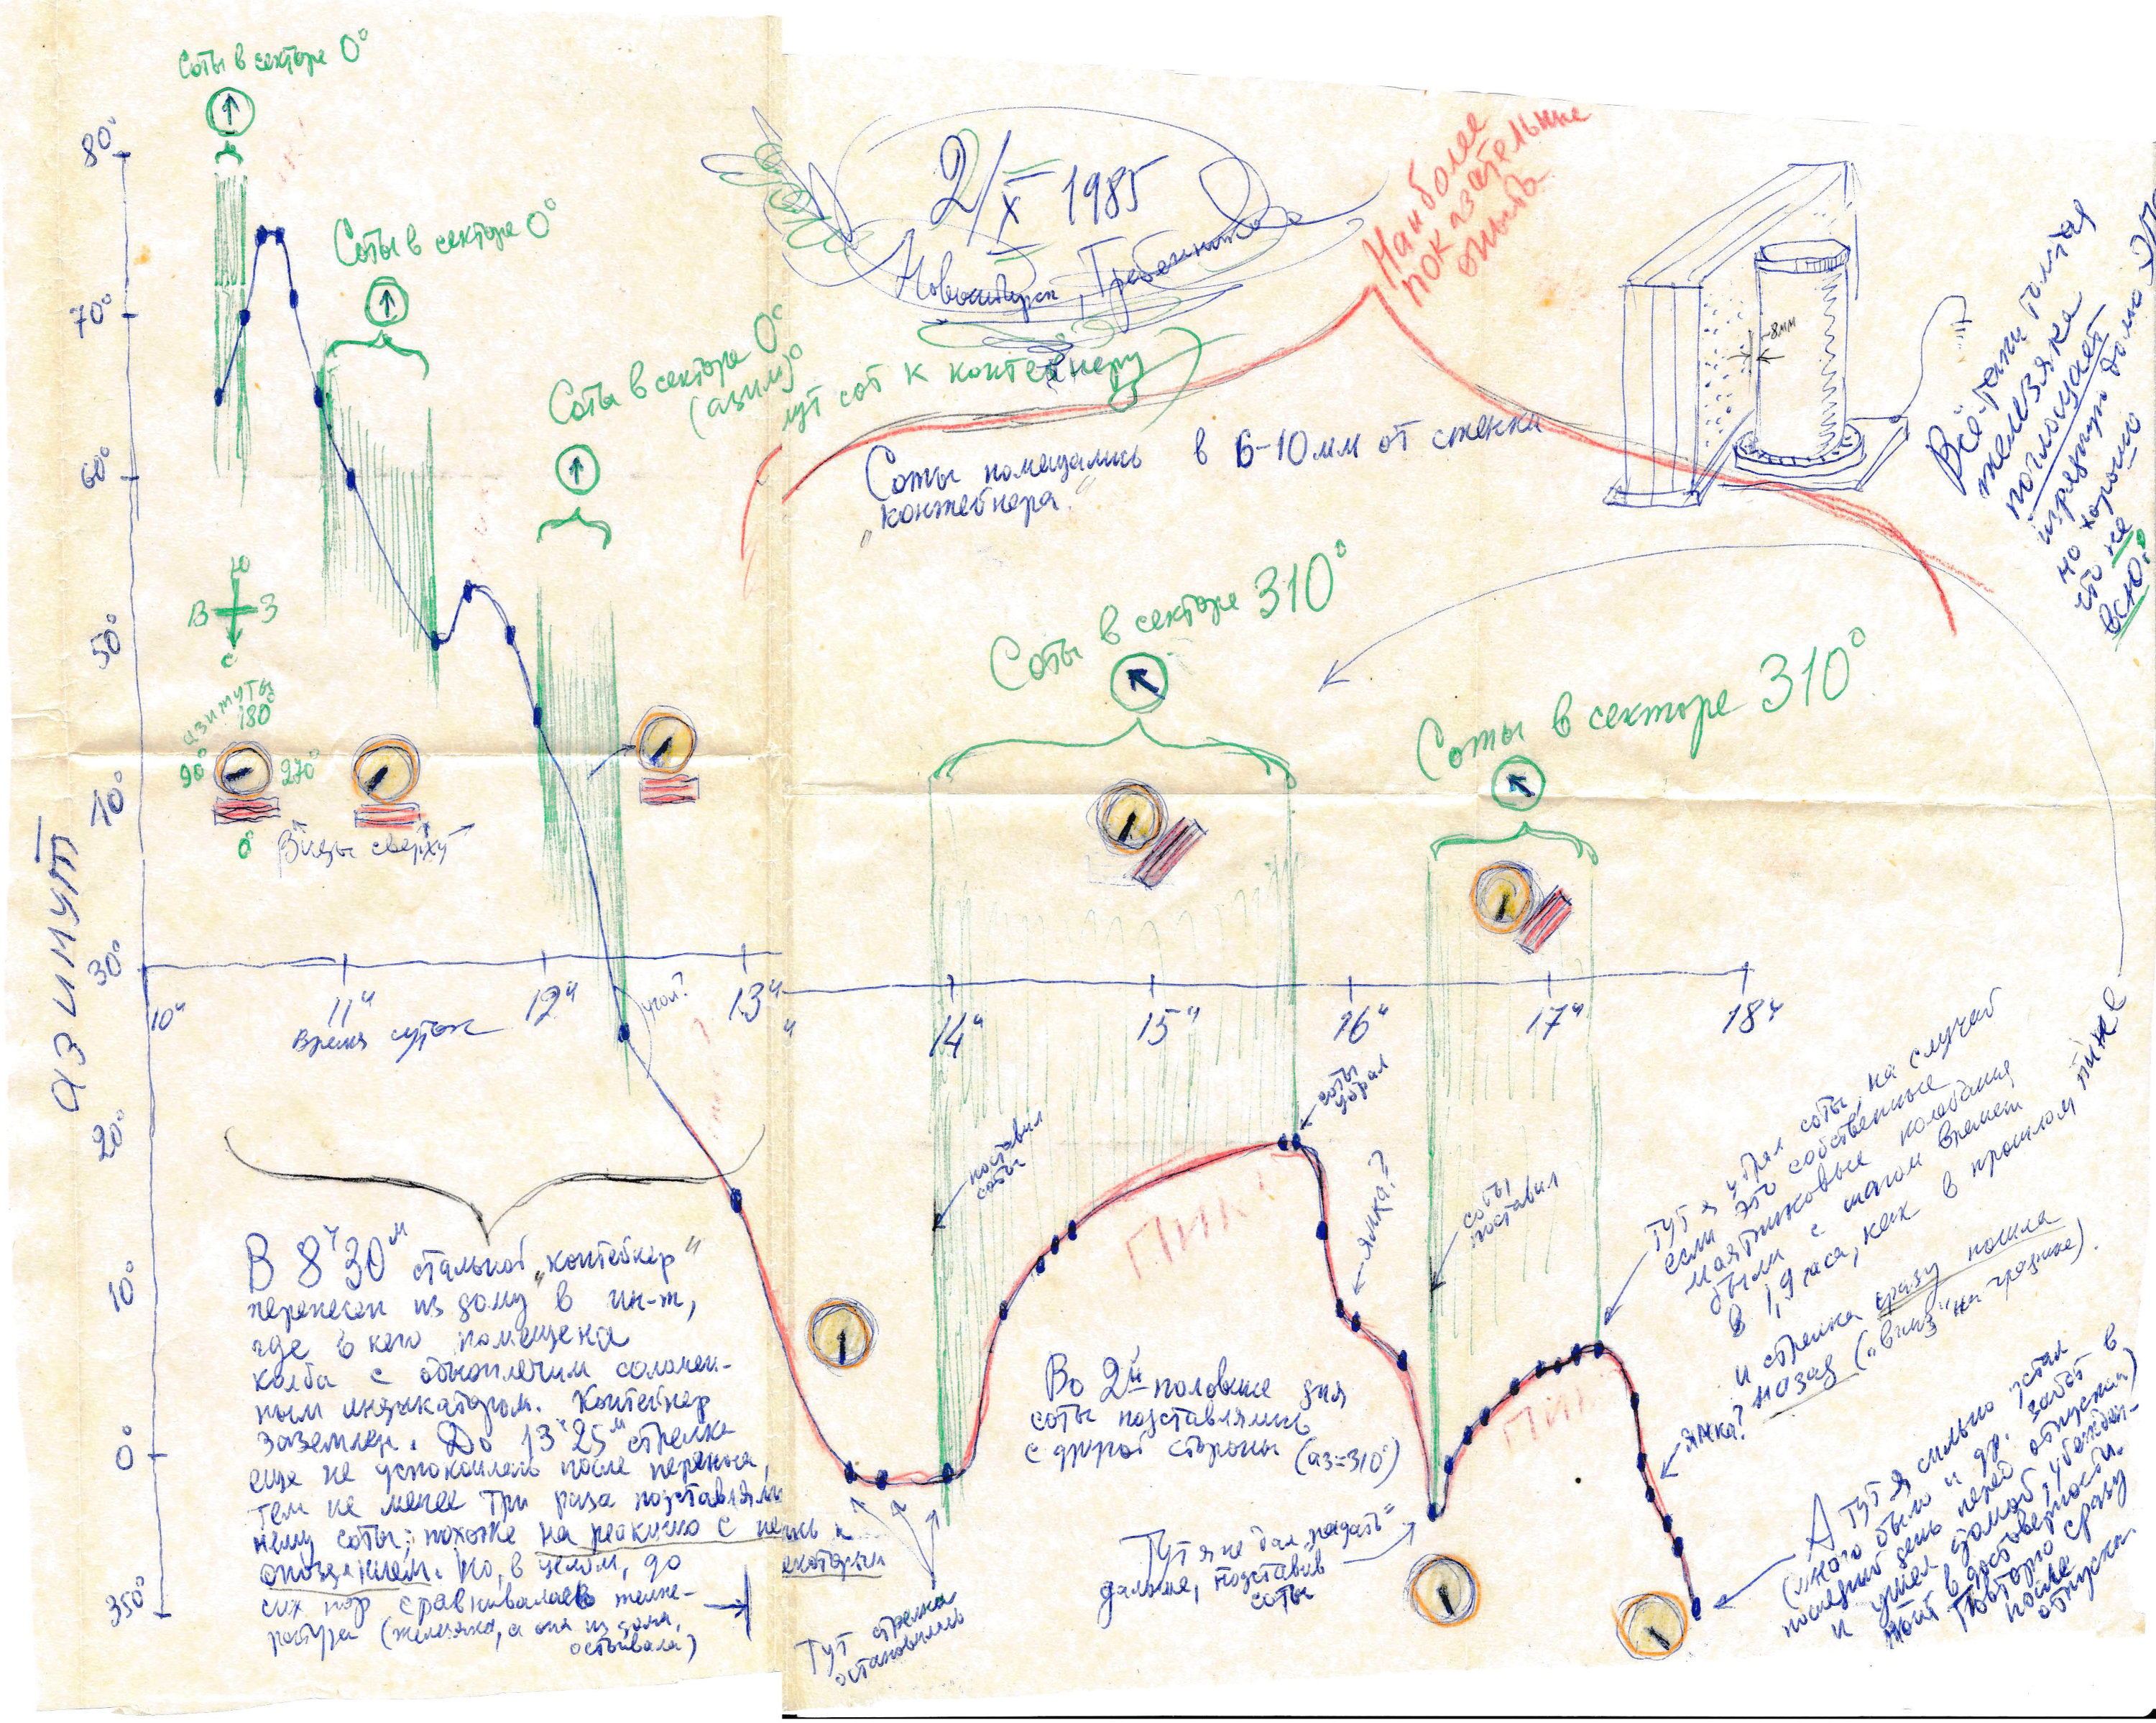 Соты в секторе 0°
Соты в секторе 0°
Соты в секторе 0°
(азимут сот к контейнеру)
2/X 1985
Новосибирск, Гребенников
Наиболее
показательные
опыты
Соты помещались в 6-10 мм от стенки
„контейнера"
~8мм
Всё-таки толстая
железяка
поглощает
изрядную долю
но хорошо
что не
всю!
80°
70°
60°
50°
40°
30°
20°
10°
0°
350°
азимут
Ю
В З
С
азимуты
180°
90° 270°
0°
Виды сверху
Соты в секторе 310°
Соты в секторе 310°
10ч 11ч 12ч 13ч 14ч 15ч 16ч 17ч 18ч
Время суток
угол?
поставил
соты
соты
убрал
ямка?
соты
поставил
ПИК
ПИК
В 8ч30м стальной „контейнер"
перенесен из дому в ин-т,
где в него помещена
колба с одноплечим соломен-
ным индикатором. Контейнер
заземлен. До 13ч25м стрелка
еще не успокоилась после переноса,
тем не менее три раза подставлялись к
нему соты; похоже на реакцию с некоторым
опозданием. Но, в целом, до
сих пор сравнивалась темпе-
ратура (железяка, а она из дома,
остывала)
Тут стрелка
остановилась
Во 2й половине дня
соты подставлялись
с другой стороны (аз=310°)
Тут я не дал „падать"
дальше, подставив
соты
Тут я убрал соты на случай
если это собственные
маятниковые колебания
были с шагом времени
в 1,9 часа, как в прошлом
пике
и стрелка сразу пошла
назад („вниз" на графике).
ямка?
А тут я сильно устал
(много было и др. забот в
последний день перед отпуском)
и ушел домой,
Повторю сразу
после
отпуска